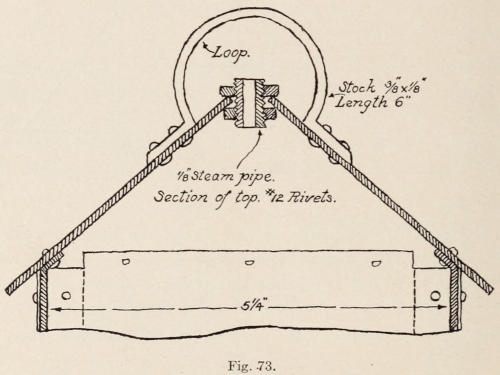 Loop.
Stock 3/8" x 1/8"
Length 6"
1/8 Steam pipe.
Section of top. #12 Rivets.
5 1/4"
Fig. 73.